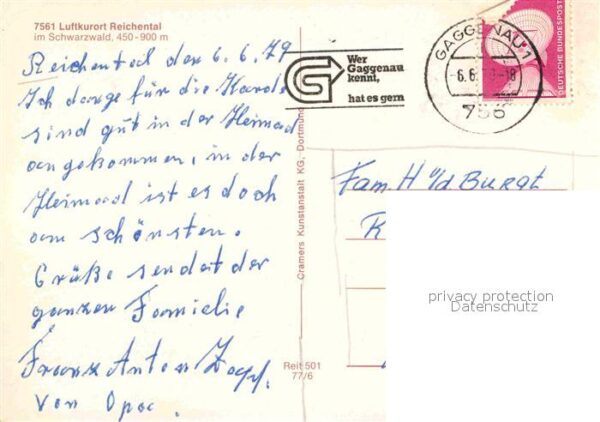 7561 Luftkurort Reichental
im Schwarzwald, 450-900 m
Reichental den 6.6.79
Ich dange für die Karde
sind gut in der Heimad
angekommen, in der
Heimad ist es doch
am schönsten.
Grüße sendet der
ganzen Familie
Franz Anton Zapf.
von Opa.
Wer
Gaggenau
kennt,
hat es gern
GAGGENAU 1
-6.6.79-18
756
DEUTSCHE BUNDESPOST
Cramers Kunstanstalt KG, Dortmund
Reit 501
77/6
Fam H v/d Burgt
privacy protection
Datenschutz